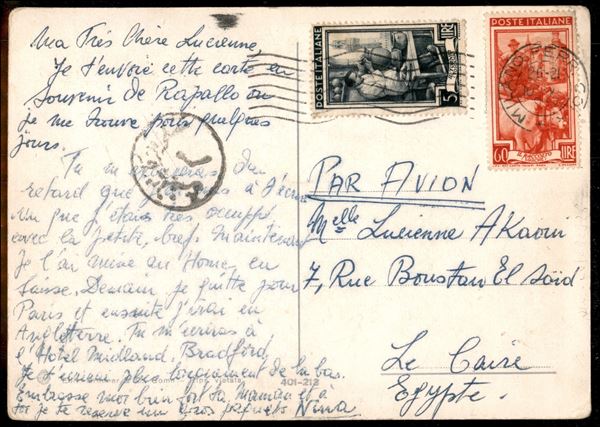 Ma Très Chère Lucienne,
Je t'envoie cette carte en
souvenir de Rapallo où
je me trouve pour quelques
jours.
Tu m'excuseras du
retard que à t'écrire
vu que j'étais très occupée
avec la petite, bref. Maintenant
Je l'ai mise au Home, en
Suisse. Demain je quitte pour
Paris et ensuite j'irai en
Angleterre. Tu m'écriras à
l'Hotel Midland, Bradford,
Je t'écrirai plus longuement de là-bas.
Embrasse moi bien fort ta Maman et à
toi je te réserve un gros paquets Nina
401-212
POSTE ITALIANE
5 LIRE
POSTE ITALIANE
60 LIRE
MILANO
PAR AVION
Melle Lucienne AKaoui
7, Rue Boustan El Saïd
Le Caire
Egypte.